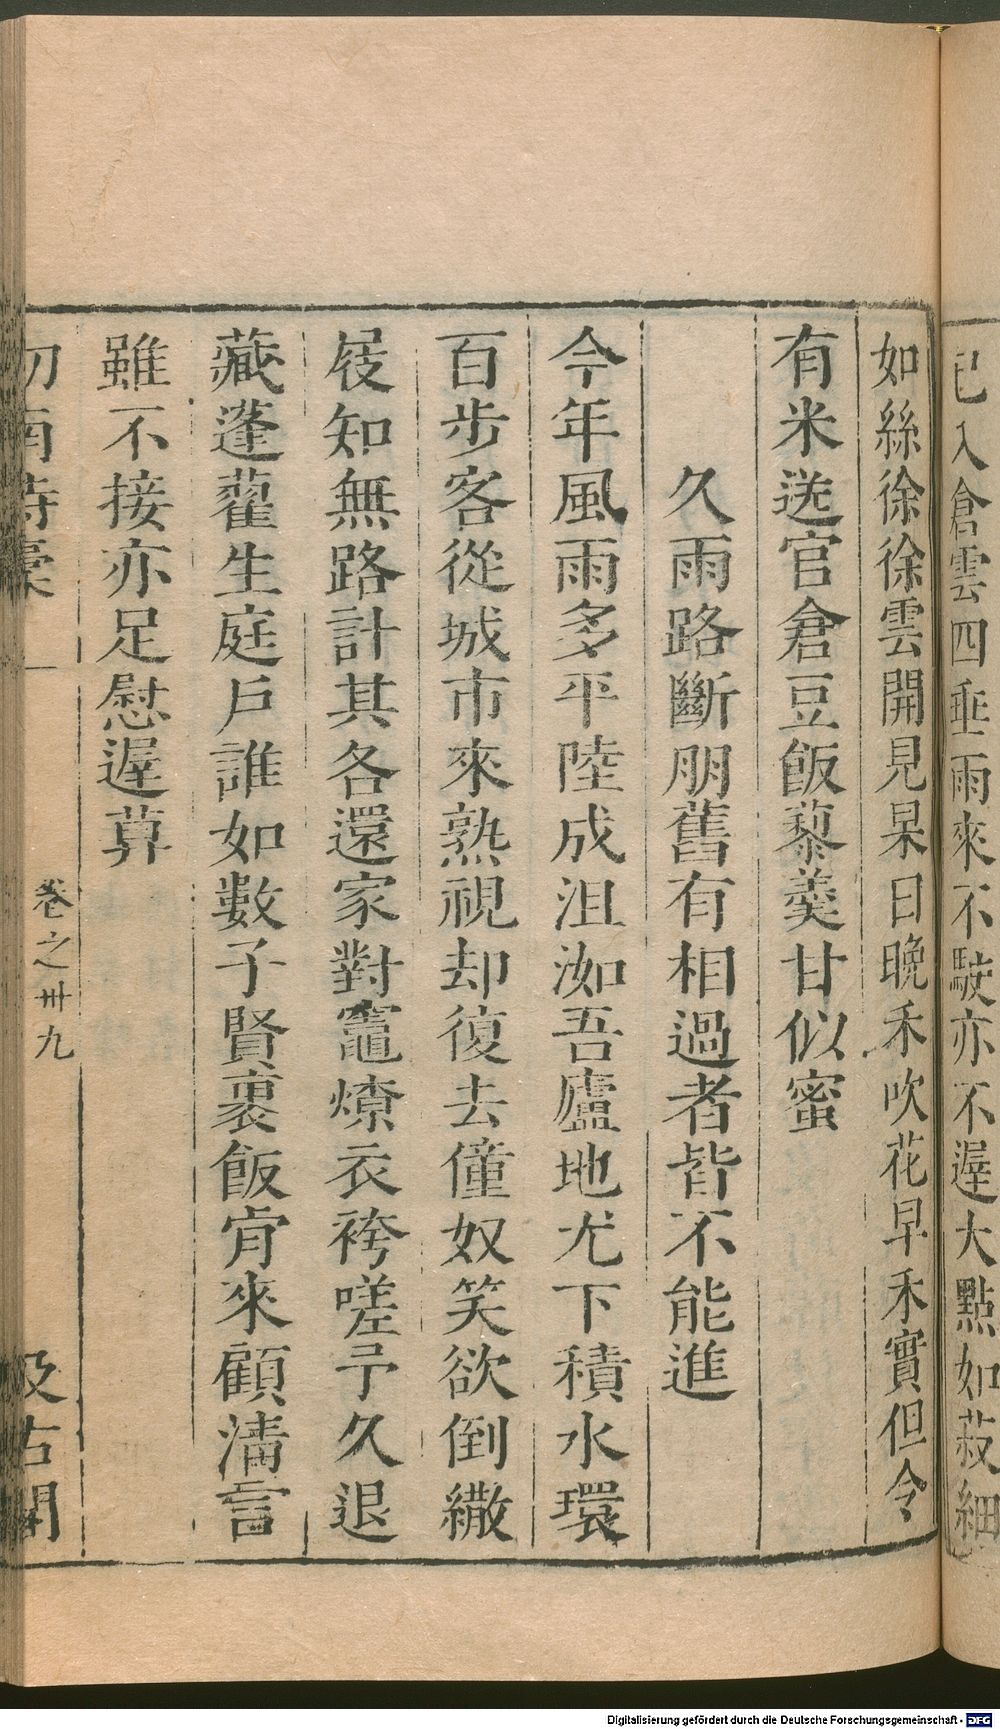 已入倉雲四垂雨來不駛亦不遲大點如菽細
如絲徐徐雲開見杲日晚禾吹花早禾實但令
有米送官倉豆飯藜羹甘似蜜
久雨路斷朋舊有相過者皆不能進
今年風雨多平陸成沮洳吾廬地尤下積水環
百步客從城市來熟視却復去僮奴笑欲倒繖
屐知無路計其各還家對竈燎衣袴嗟予久退
藏蓬藋生庭戶誰如數子賢裹飯肯來顧清言
雖不接亦足慰遲莫
劒南詩稾 卷之卅九 汲古閣
Digitalisierung gefördert durch die Deutsche Forschungsgemeinschaft - DFG